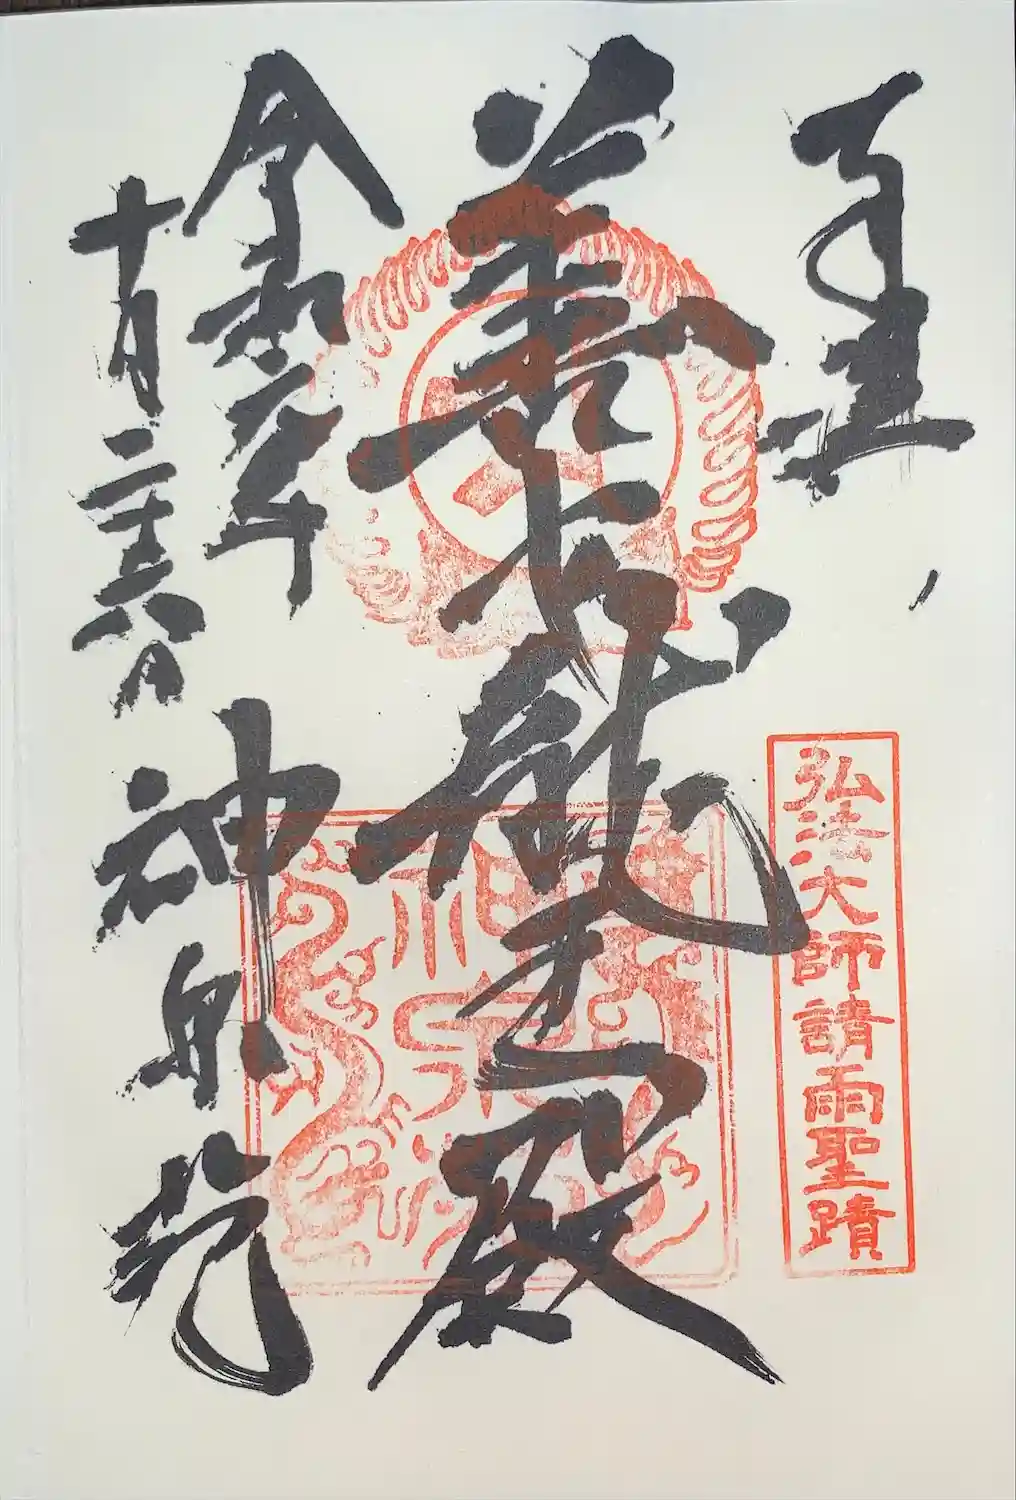 弘法大師請雨聖蹟
善女龍王殿
令和六年
十月二十六日
神泉苑